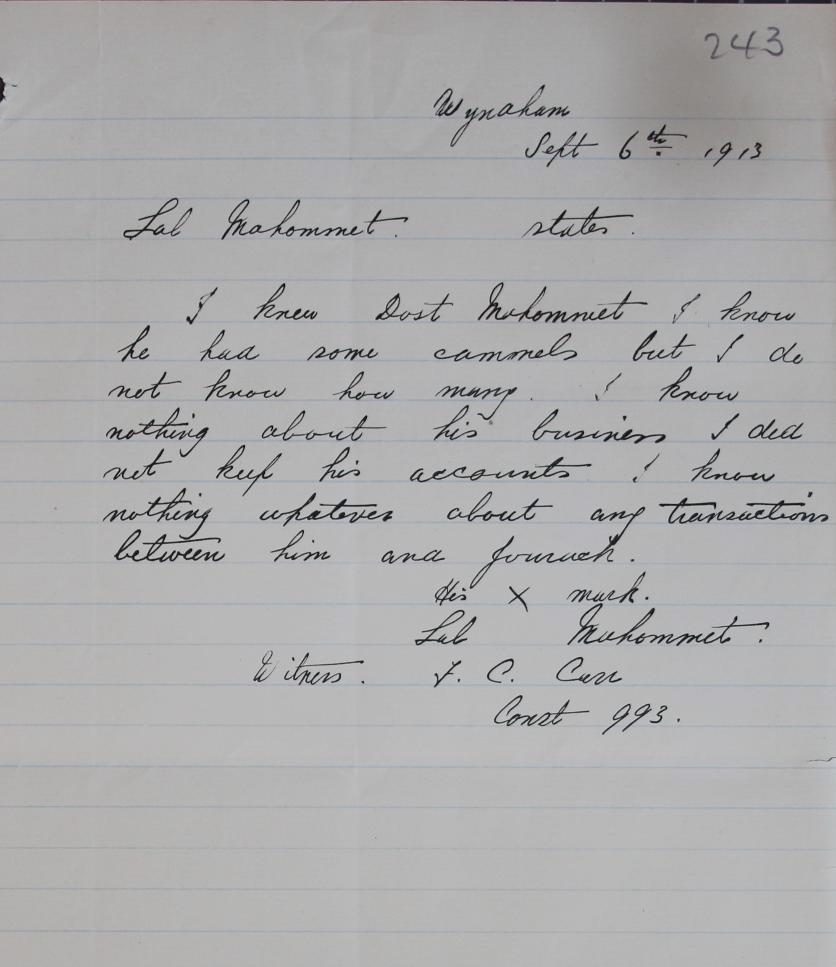 243
Wynaham
Sept 6th 1913
Lal Mahommet. states.
I knew Dost Mahommet I know
he had some cammels but I do
not know how many. I know
nothing about his business I did
not keep his accounts I know
nothing whatever about any transactions
between him and
His X mark.
Lal Mahommet.
Witness. F. C. Carr
Const 993.